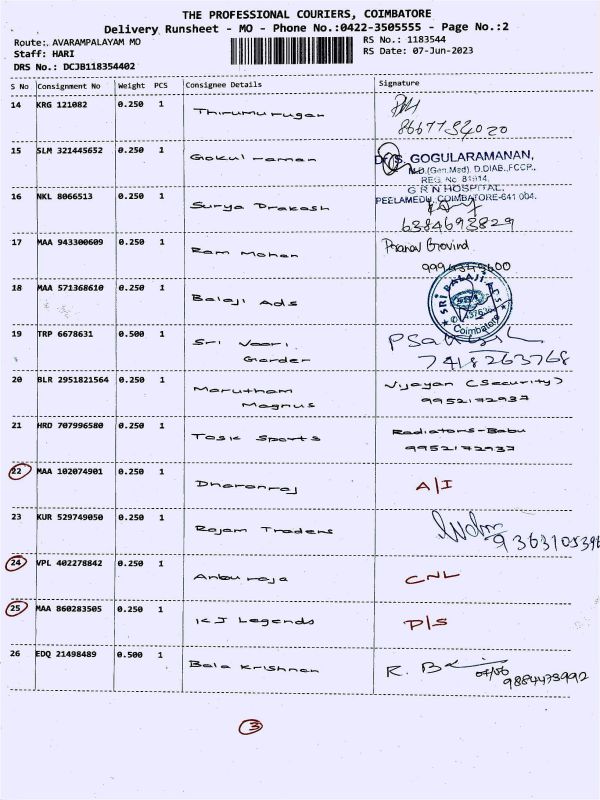 THE PROFESSIONAL COURIERS, COIMBATORE
Delivery Runsheet - MO - Phone No.:0422-3505555 - Page No.:2
Route: AVARAMPALAYAM MO RS No.: 1183544
Staff: HARI RS Date: 07-Jun-2023
DRS No.: DCJB118354402
S No Consignment No Weight PCS Consignee Details Signature
14 KRG 121082 0.250 1 Thirumurugan
8667734020
15 SLM 321445652 0.250 1 Gokul raman
Dr. S. GOGULARAMANAN,
M.D.(Gen.Med), D.DIAB.,FCCP.,
REG. No. 81914,
G R N HOSPITAL,
PEELAMEDU, COIMBATORE-641 004.
16 NKL 8066513 0.250 1 Surya Prakash
6384693829
17 MAA 943300609 0.250 1 Ram Mohan Pranav Govind
18 MAA 571368610 0.250 1 Balaji Ads
SRI BALAJI ADS
Coimbatore
19 TRP 6678631 0.500 1 Sri Vaari
Garder
7418263768
20 BLR 2951821564 0.250 1 Marutham Vijayan (Security)
Magnus 9952172937
21 HRD 707996580 0.250 1 Task Sports Radiators-Babu
9952172937
22 MAA 102074901 0.250 1 Dharanraj A/I
23 KUR 529749050 0.250 1 Rajam Traders
9363105396
24 VPL 402278842 0.250 1 Anbu raja CNL
25 MAA 860283505 0.250 1 K J Legends D/S
26 EDQ 21498489 0.500 1 Bala Krishnan R. Ba
07/06
9884473992
3